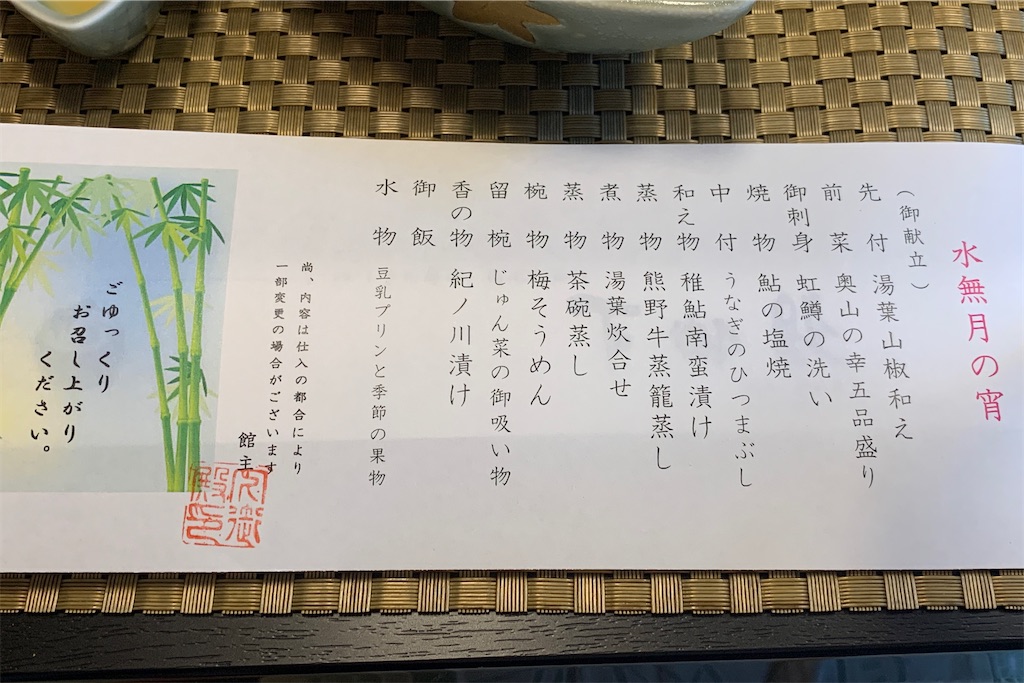 水無月の宵
（御献立）
先付 湯葉山椒和え
前菜 奥山の幸五品盛り
御刺身 虹鱒の洗い
焼物 鮎の塩焼
中付 うなぎのひつまぶし
和え物 稚鮎南蛮漬け
蒸物 熊野牛蒸籠蒸し
煮物 湯葉炊合せ
蒸物 茶碗蒸し
椀物 梅そうめん
留椀 じゅん菜の御吸い物
香の物 紀ノ川漬け
御飯
水物 豆乳プリンと季節の果物
尚、内容は仕入の都合により
一部変更の場合がございます
館主
ごゆっくり
お召し上がり
ください。